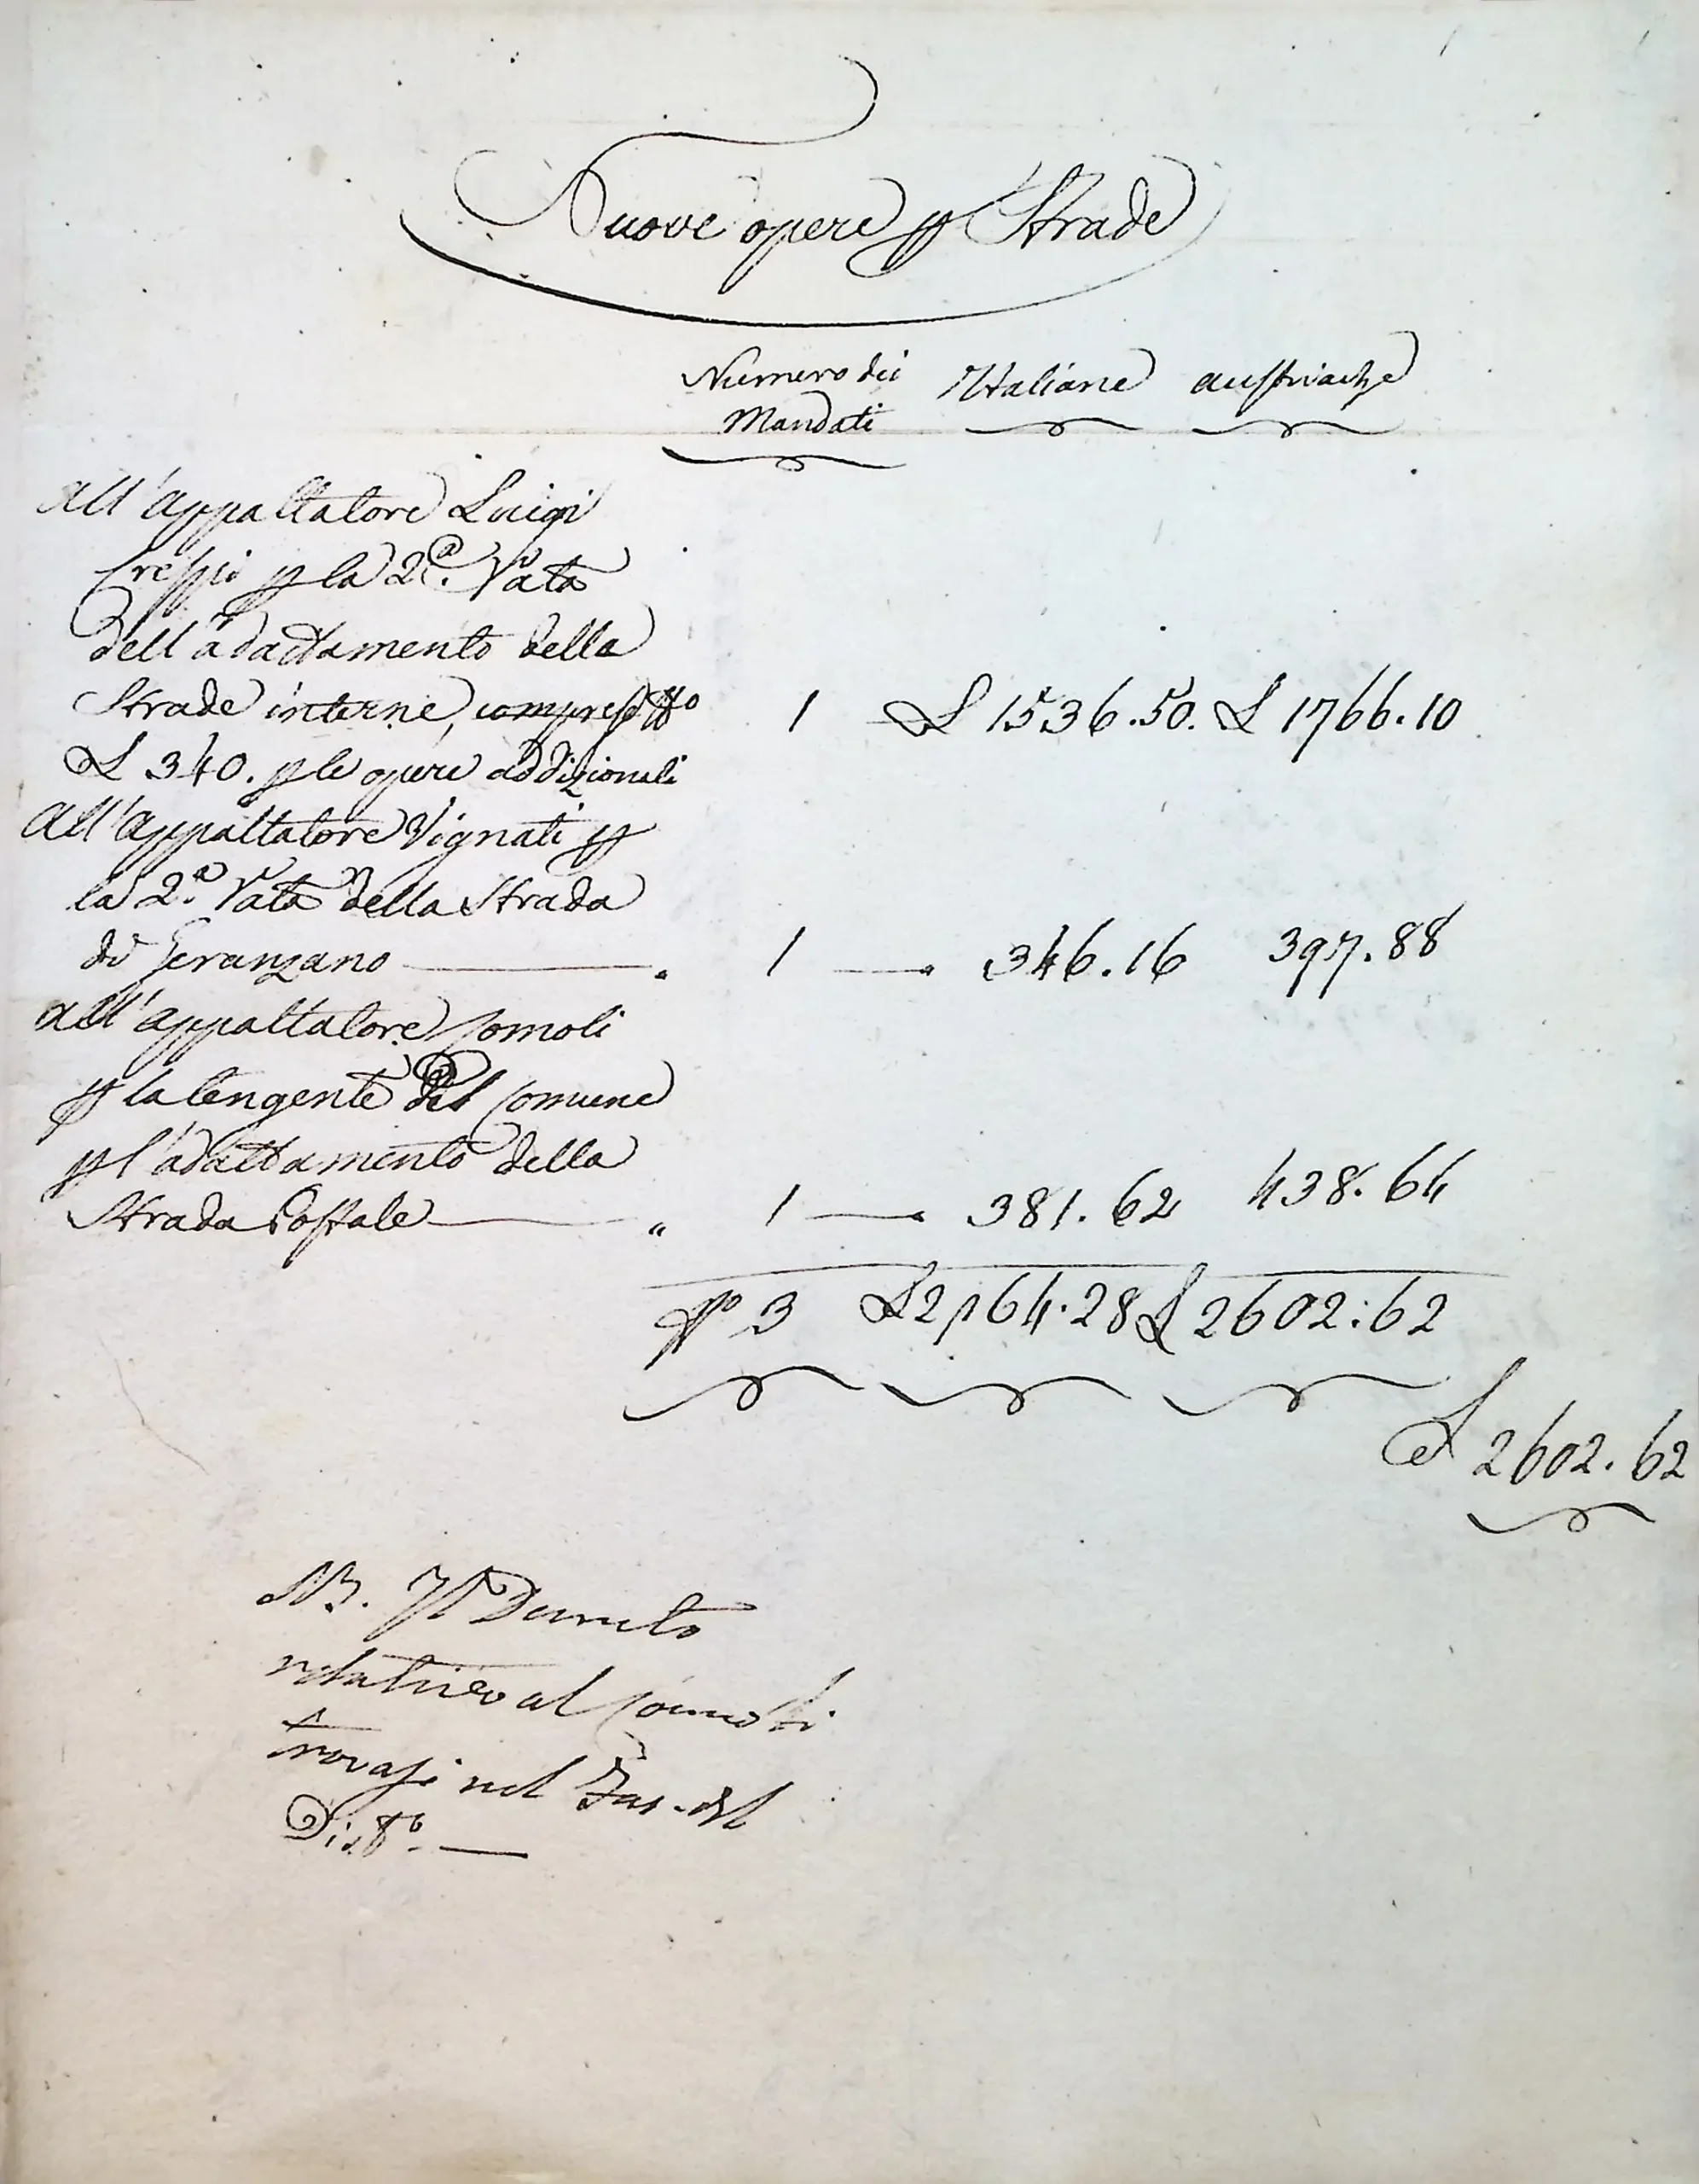 Nuove opere p Strade
Numero dei Italiane austriache
Mandati
All'appaltatore Luigi
Crespi p la 2ª. rata
dell'adattamento delle
Strade interne, compreso
L 340. p le opere addizionali 1 L 1536.50. L 1766.10
All'appaltatore Vignati p
la 2ª. rata della Strada
di Geranzano 1 346.16 397.88
All'appaltatore Comoli
p la tangente del Comune
p l'adattamento della
Strada Postale " 1 381.62 438.64
N° 3 L 2264.28 L 2602:62
L 2602.62
NB. Il Decreto
relativo al Comoli
trovasi nel Fas. del
Dist°.